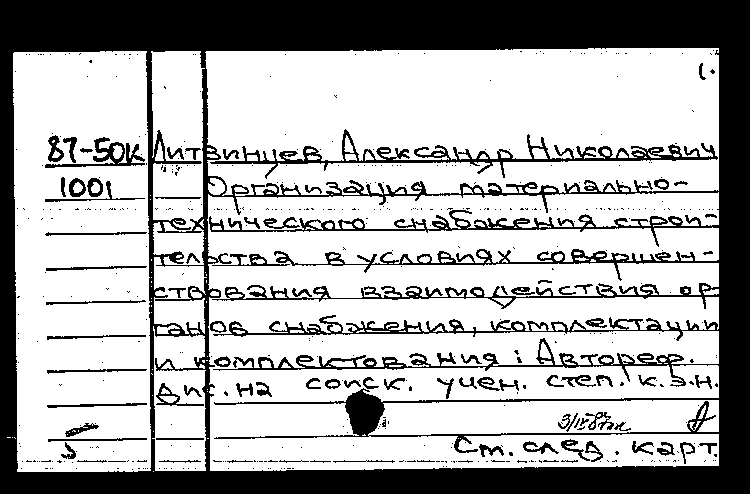 1.
87-50к Литвинцев, Александр Николаевич
1001 Организация материально-
технического снабжения строи-
тельства в условиях совершен-
ствования взаимодействия ор-
ганов снабжения, комплектации
и комплектования: Автореф.
дис. на соиск. учен. степ. к.э.н.
См. след. карт.